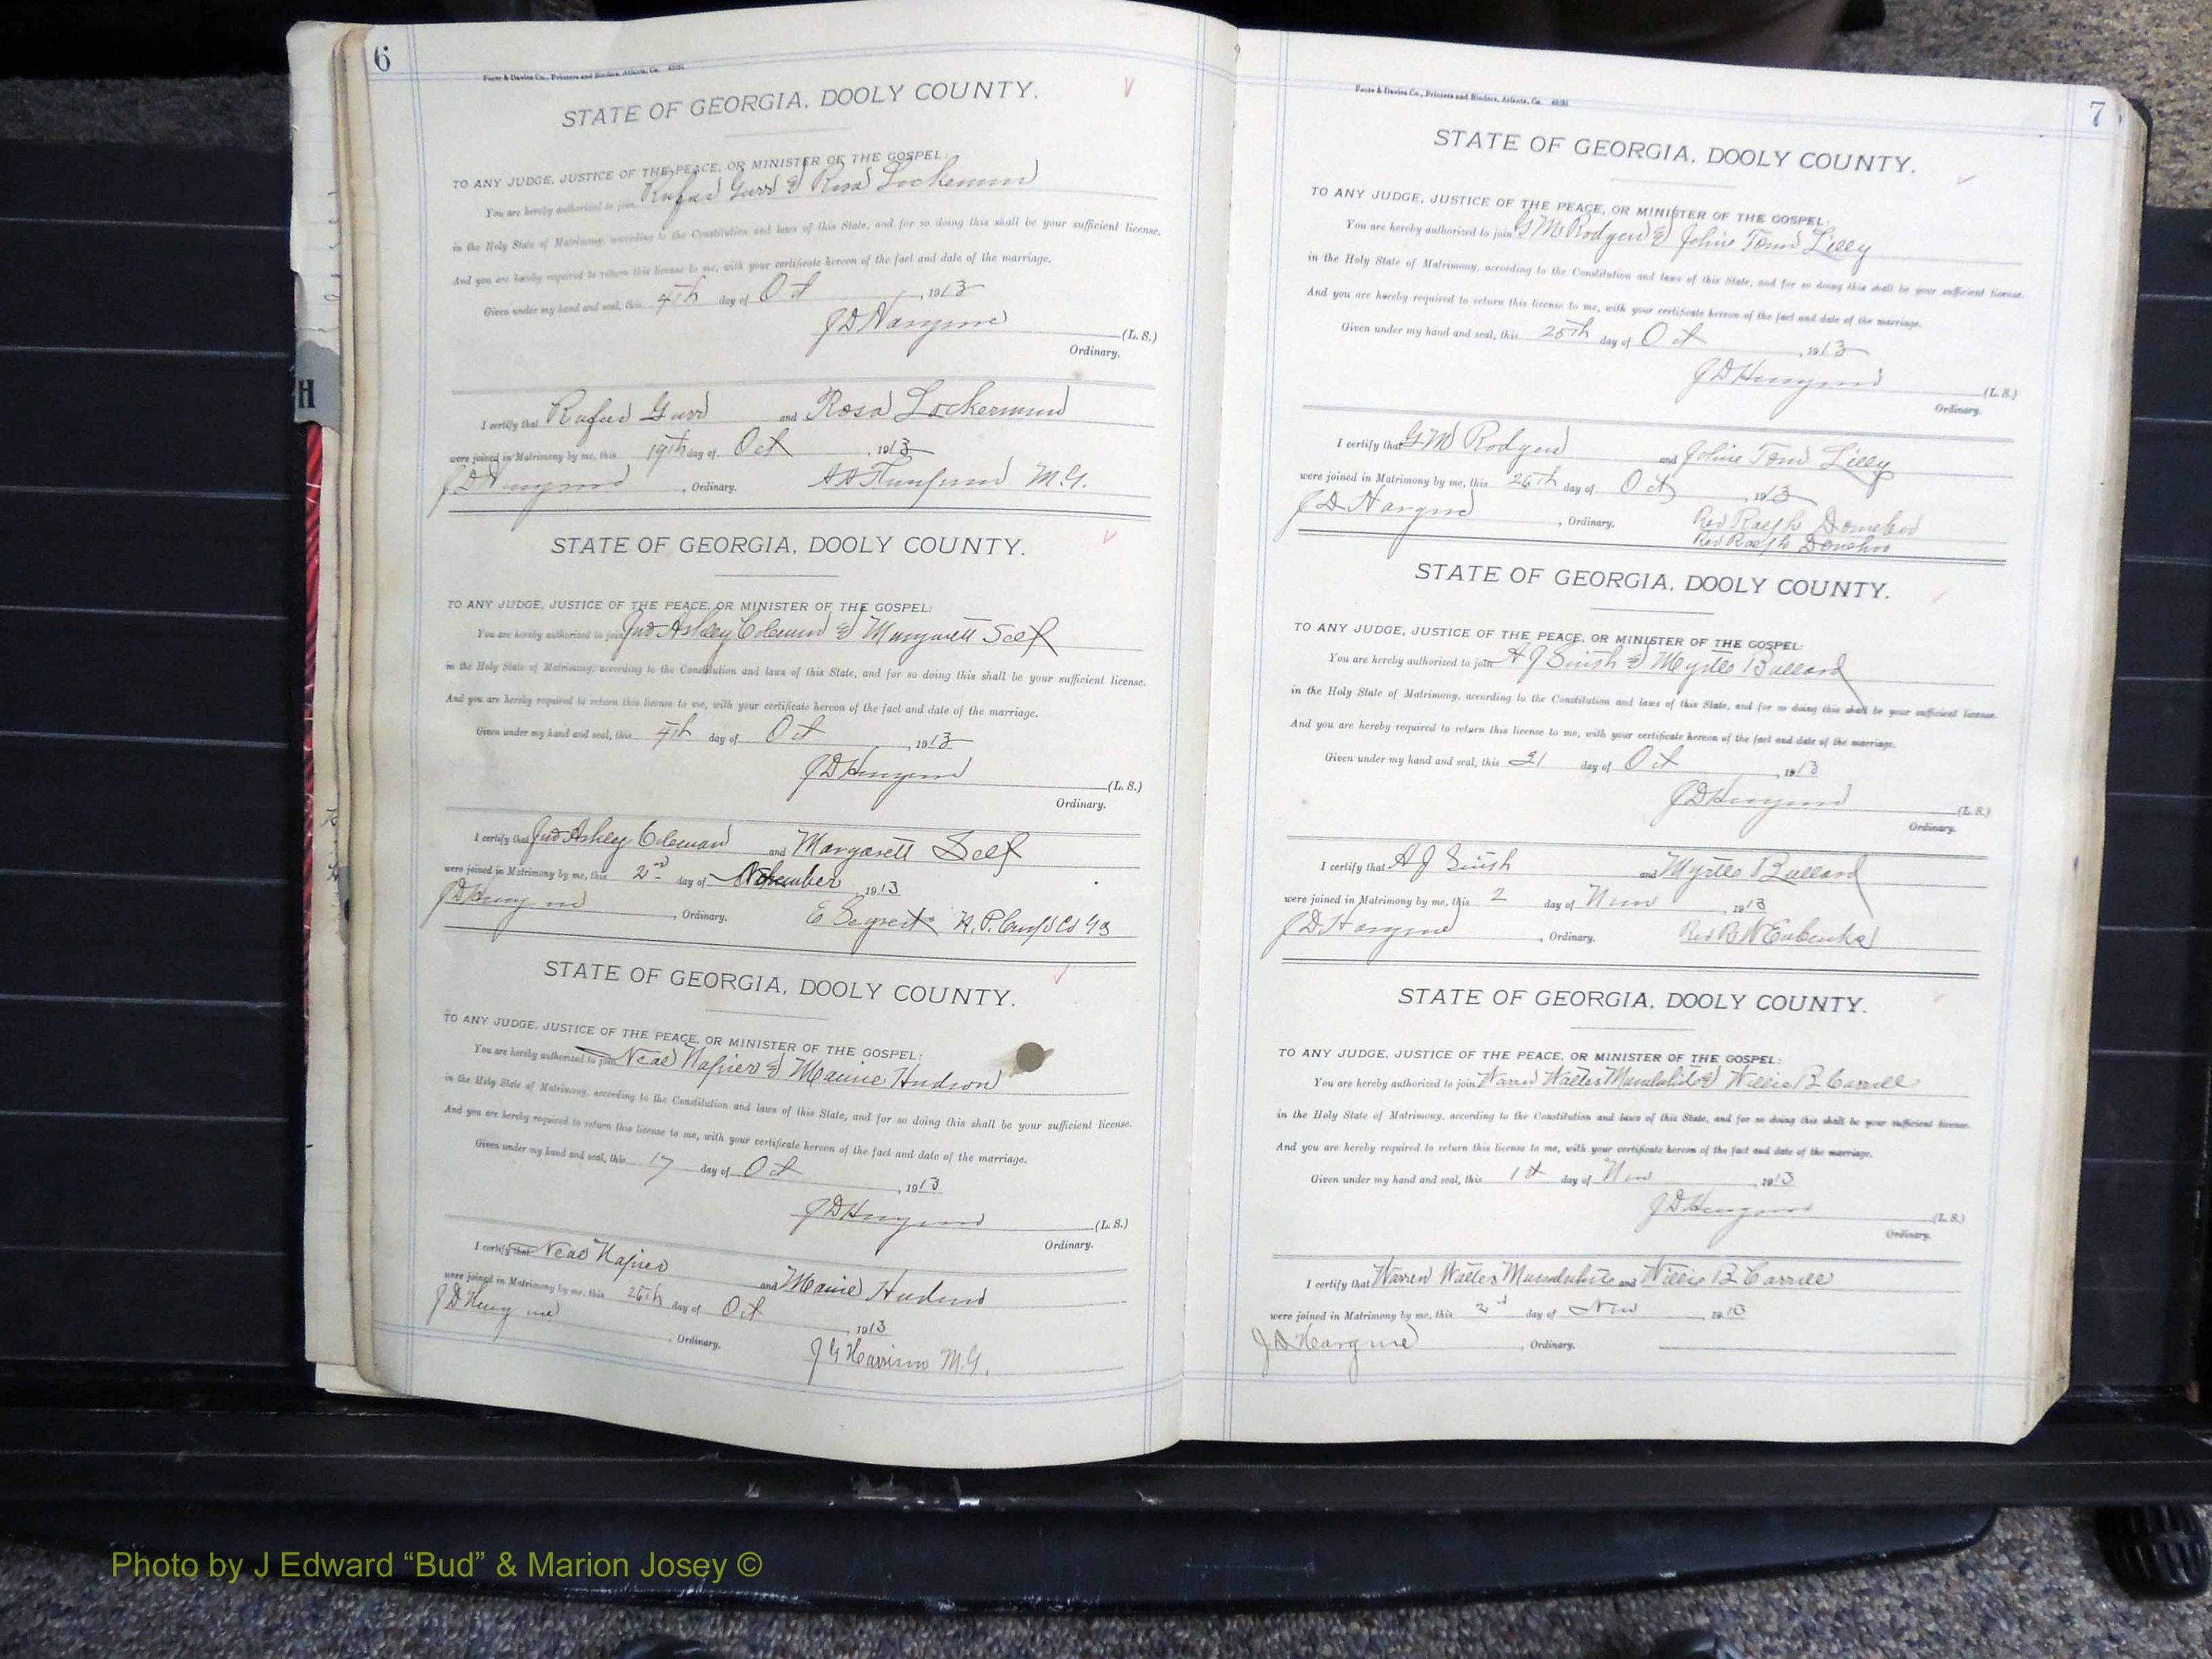 6
Foote & Davies Co., Printers and Binders, Atlanta, Ga.
STATE OF GEORGIA, DOOLY COUNTY.
TO ANY JUDGE, JUSTICE OF THE PEACE, OR MINISTER OF THE GOSPEL:
You are hereby authorized to join Rufus Gurr & Rosa
in the Holy State of Matrimony, according to the Constitution and laws of this State, and for so doing this shall be your sufficient license.
And you are hereby required to return this license to me, with your certificate hereon of the fact and date of the marriage.
Given under my hand and seal, this 4th day of Oct, 1913
J D Hargrove (L. S.)
Ordinary.
I certify that Rufus Gurr and Rosa
were joined in Matrimony by me, this 19th day of Oct, 1913
J D Hargrove, Ordinary. M.G.
STATE OF GEORGIA, DOOLY COUNTY.
TO ANY JUDGE, JUSTICE OF THE PEACE, OR MINISTER OF THE GOSPEL:
You are hereby authorized to join Jno Ashley Coleman & Margarett Self
in the Holy State of Matrimony, according to the Constitution and laws of this State, and for so doing this shall be your sufficient license.
And you are hereby required to return this license to me, with your certificate hereon of the fact and date of the marriage.
Given under my hand and seal, this 4th day of Oct, 1913
J D Hargrove (L. S.)
Ordinary.
I certify that Jno Ashley Coleman and Margarett Self
were joined in Matrimony by me, this 2nd day of November, 1913
J D Hargrove, Ordinary. E
STATE OF GEORGIA, DOOLY COUNTY.
TO ANY JUDGE, JUSTICE OF THE PEACE, OR MINISTER OF THE GOSPEL:
You are hereby authorized to join Neal Napier & Mamie Hudson
in the Holy State of Matrimony, according to the Constitution and laws of this State, and for so doing this shall be your sufficient license.
And you are hereby required to return this license to me, with your certificate hereon of the fact and date of the marriage.
Given under my hand and seal, this 17 day of Oct, 1913
J D Hargrove (L. S.)
Ordinary.
I certify that Neal Napier and Mamie Hudson
were joined in Matrimony by me, this 26th day of Oct, 1913
J D Hargrove, Ordinary.
J G Harrison M.G.
7
Foote & Davies Co., Printers and Binders, Atlanta, Ga.
STATE OF GEORGIA, DOOLY COUNTY.
TO ANY JUDGE, JUSTICE OF THE PEACE, OR MINISTER OF THE GOSPEL:
You are hereby authorized to join G M Rodgers & Johnie Tom Lilly
in the Holy State of Matrimony, according to the Constitution and laws of this State, and for so doing this shall be your sufficient license.
And you are hereby required to return this license to me, with your certificate hereon of the fact and date of the marriage.
Given under my hand and seal, this 25th day of Oct, 1913
J D Hargrove (L. S.)
Ordinary.
I certify that G M Rodgers and Johnie Tom Lilly
were joined in Matrimony by me, this 26th day of Oct, 1913
J D Hargrove, Ordinary. Rev Ralph Donehoo
Rev Ralph Donehoo
STATE OF GEORGIA, DOOLY COUNTY.
TO ANY JUDGE, JUSTICE OF THE PEACE, OR MINISTER OF THE GOSPEL:
You are hereby authorized to join A J Smith & Myrtle Bullard
in the Holy State of Matrimony, according to the Constitution and laws of this State, and for so doing this shall be your sufficient license.
And you are hereby required to return this license to me, with your certificate hereon of the fact and date of the marriage.
Given under my hand and seal, this 31 day of Oct, 1913
J D Hargrove (L. S.)
Ordinary.
I certify that A J Smith and Myrtle Bullard
were joined in Matrimony by me, this 2 day of Nov, 1913
J D Hargrove, Ordinary. Rev Eubanks
STATE OF GEORGIA, DOOLY COUNTY.
TO ANY JUDGE, JUSTICE OF THE PEACE, OR MINISTER OF THE GOSPEL:
You are hereby authorized to join Warren Walter & Willie B Carroll
in the Holy State of Matrimony, according to the Constitution and laws of this State, and for so doing this shall be your sufficient license.
And you are hereby required to return this license to me, with your certificate hereon of the fact and date of the marriage.
Given under my hand and seal, this 1st day of Nov, 1913
J D Hargrove (L. S.)
Ordinary.
I certify that Warren Walter and Willie B Carroll
were joined in Matrimony by me, this 2nd day of Nov, 1913
J D Hargrove, Ordinary.
H
Photo by J Edward “Bud” & Marion Josey ©